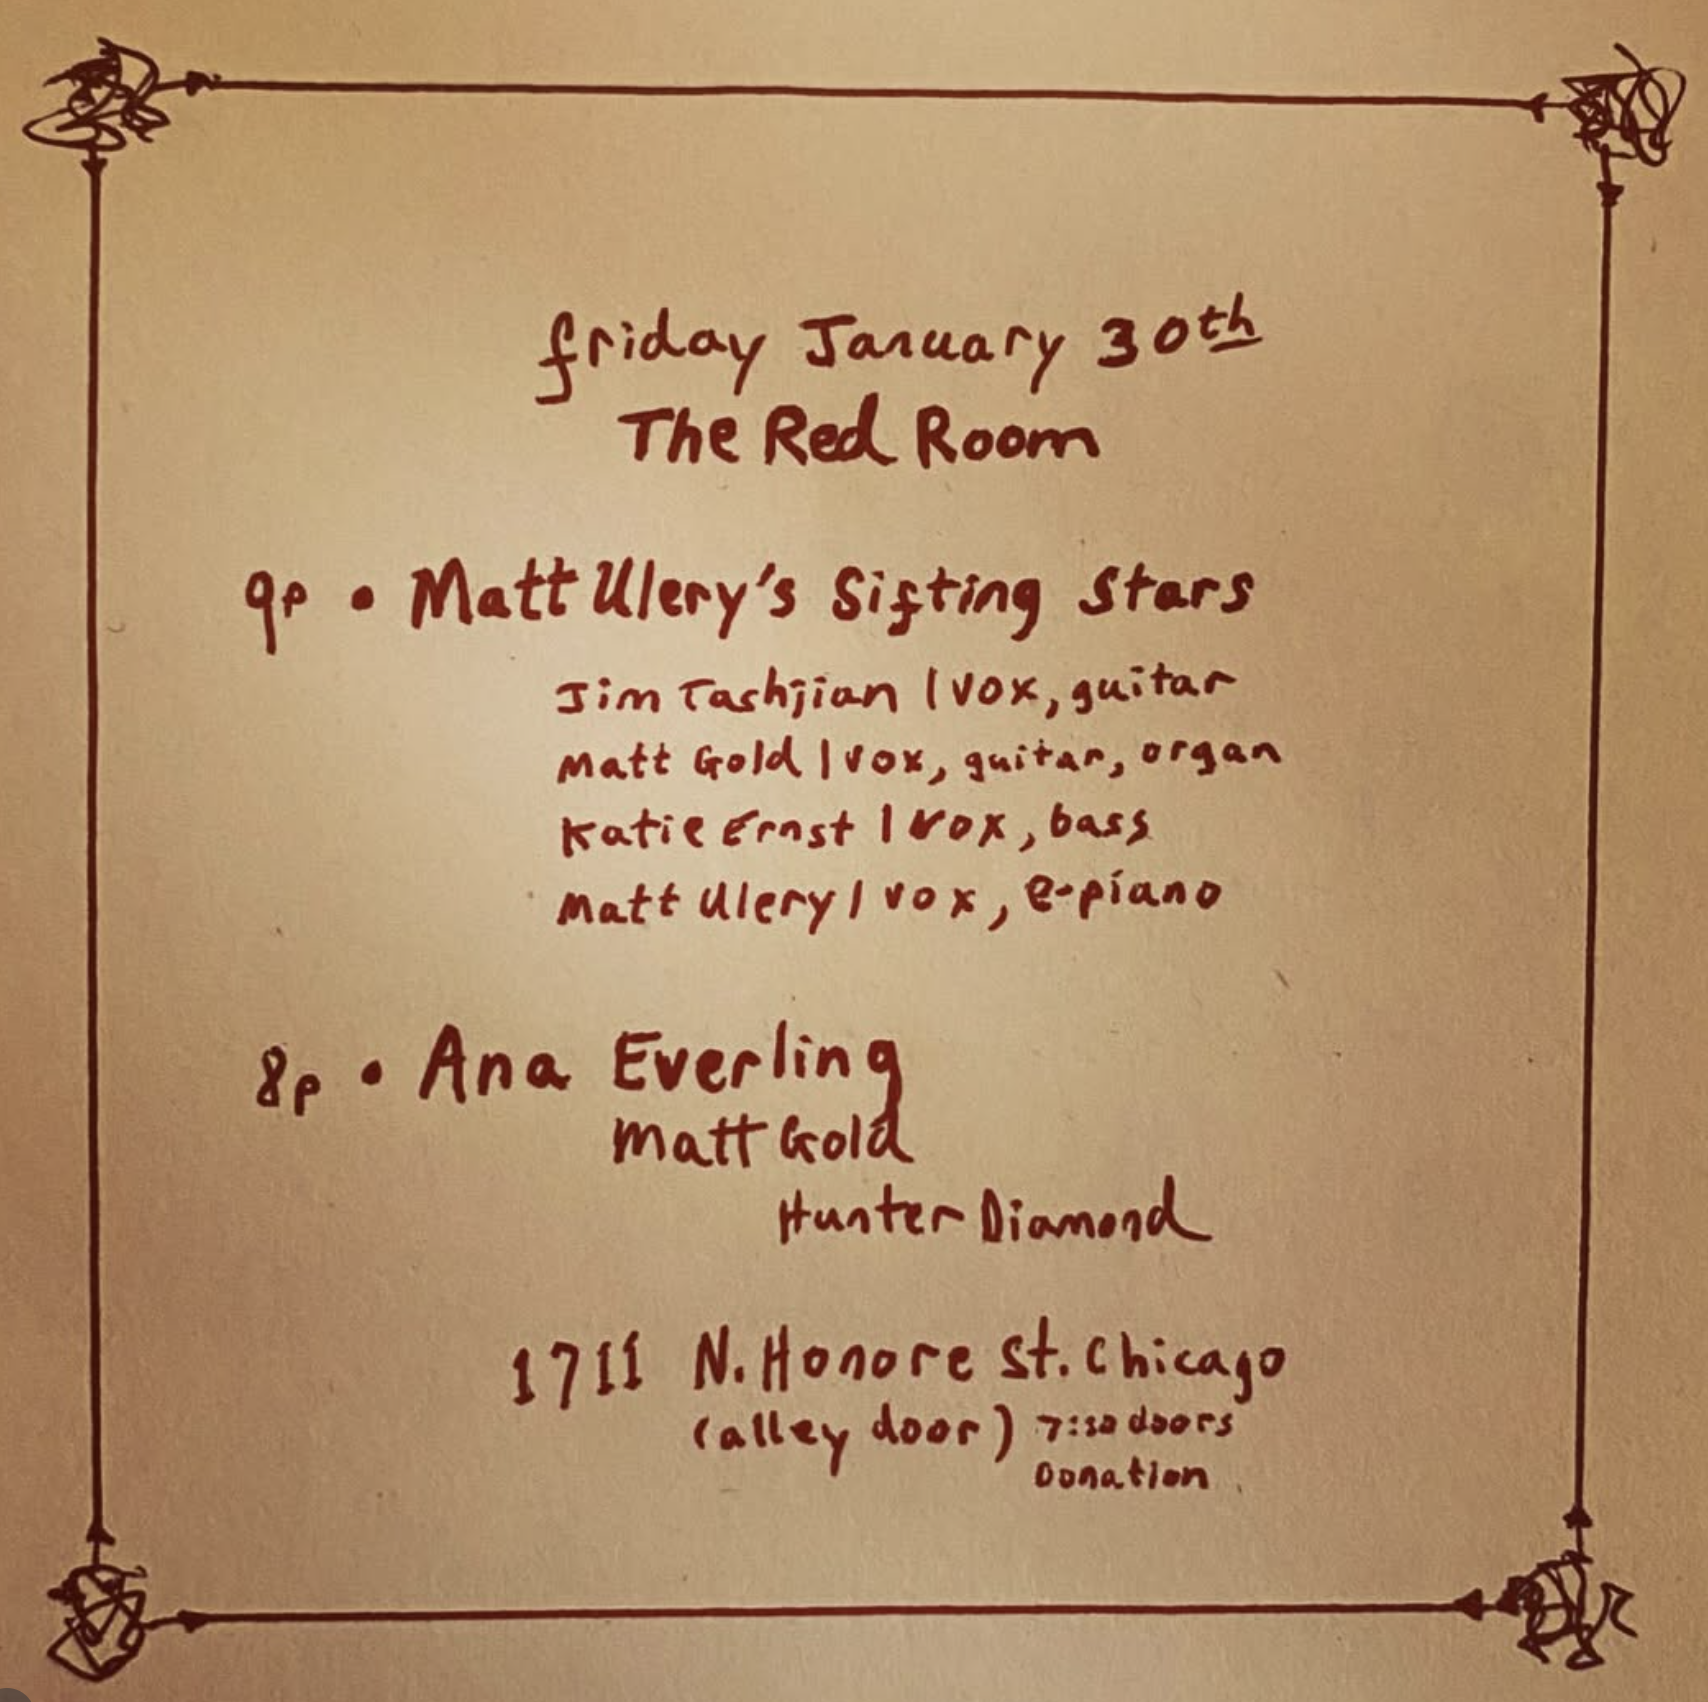 friday January 30th
The Red Room
9p • Matt Ulery's Sifting Stars
Jim Tashjian | vox, guitar
Matt Gold | vox, guitar, organ
Katie Ernst | vox, bass
Matt Ulery | vox, e-piano
8p • Ana Everling
Matt Gold
Hunter Diamond
1711 N. Honore St. Chicago
(alley door) 7:30 doors
Donation